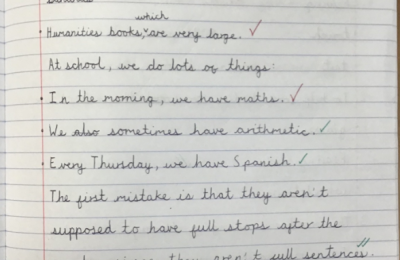 which
Humanities books, are very large.
At school, we do lots of things:
In the morning, we have maths.
We also sometimes have arithmetic.
Every Thursday, we have Spanish.
The first mistake is that they aren't
supposed to have full stops after the
they aren't full sentences.